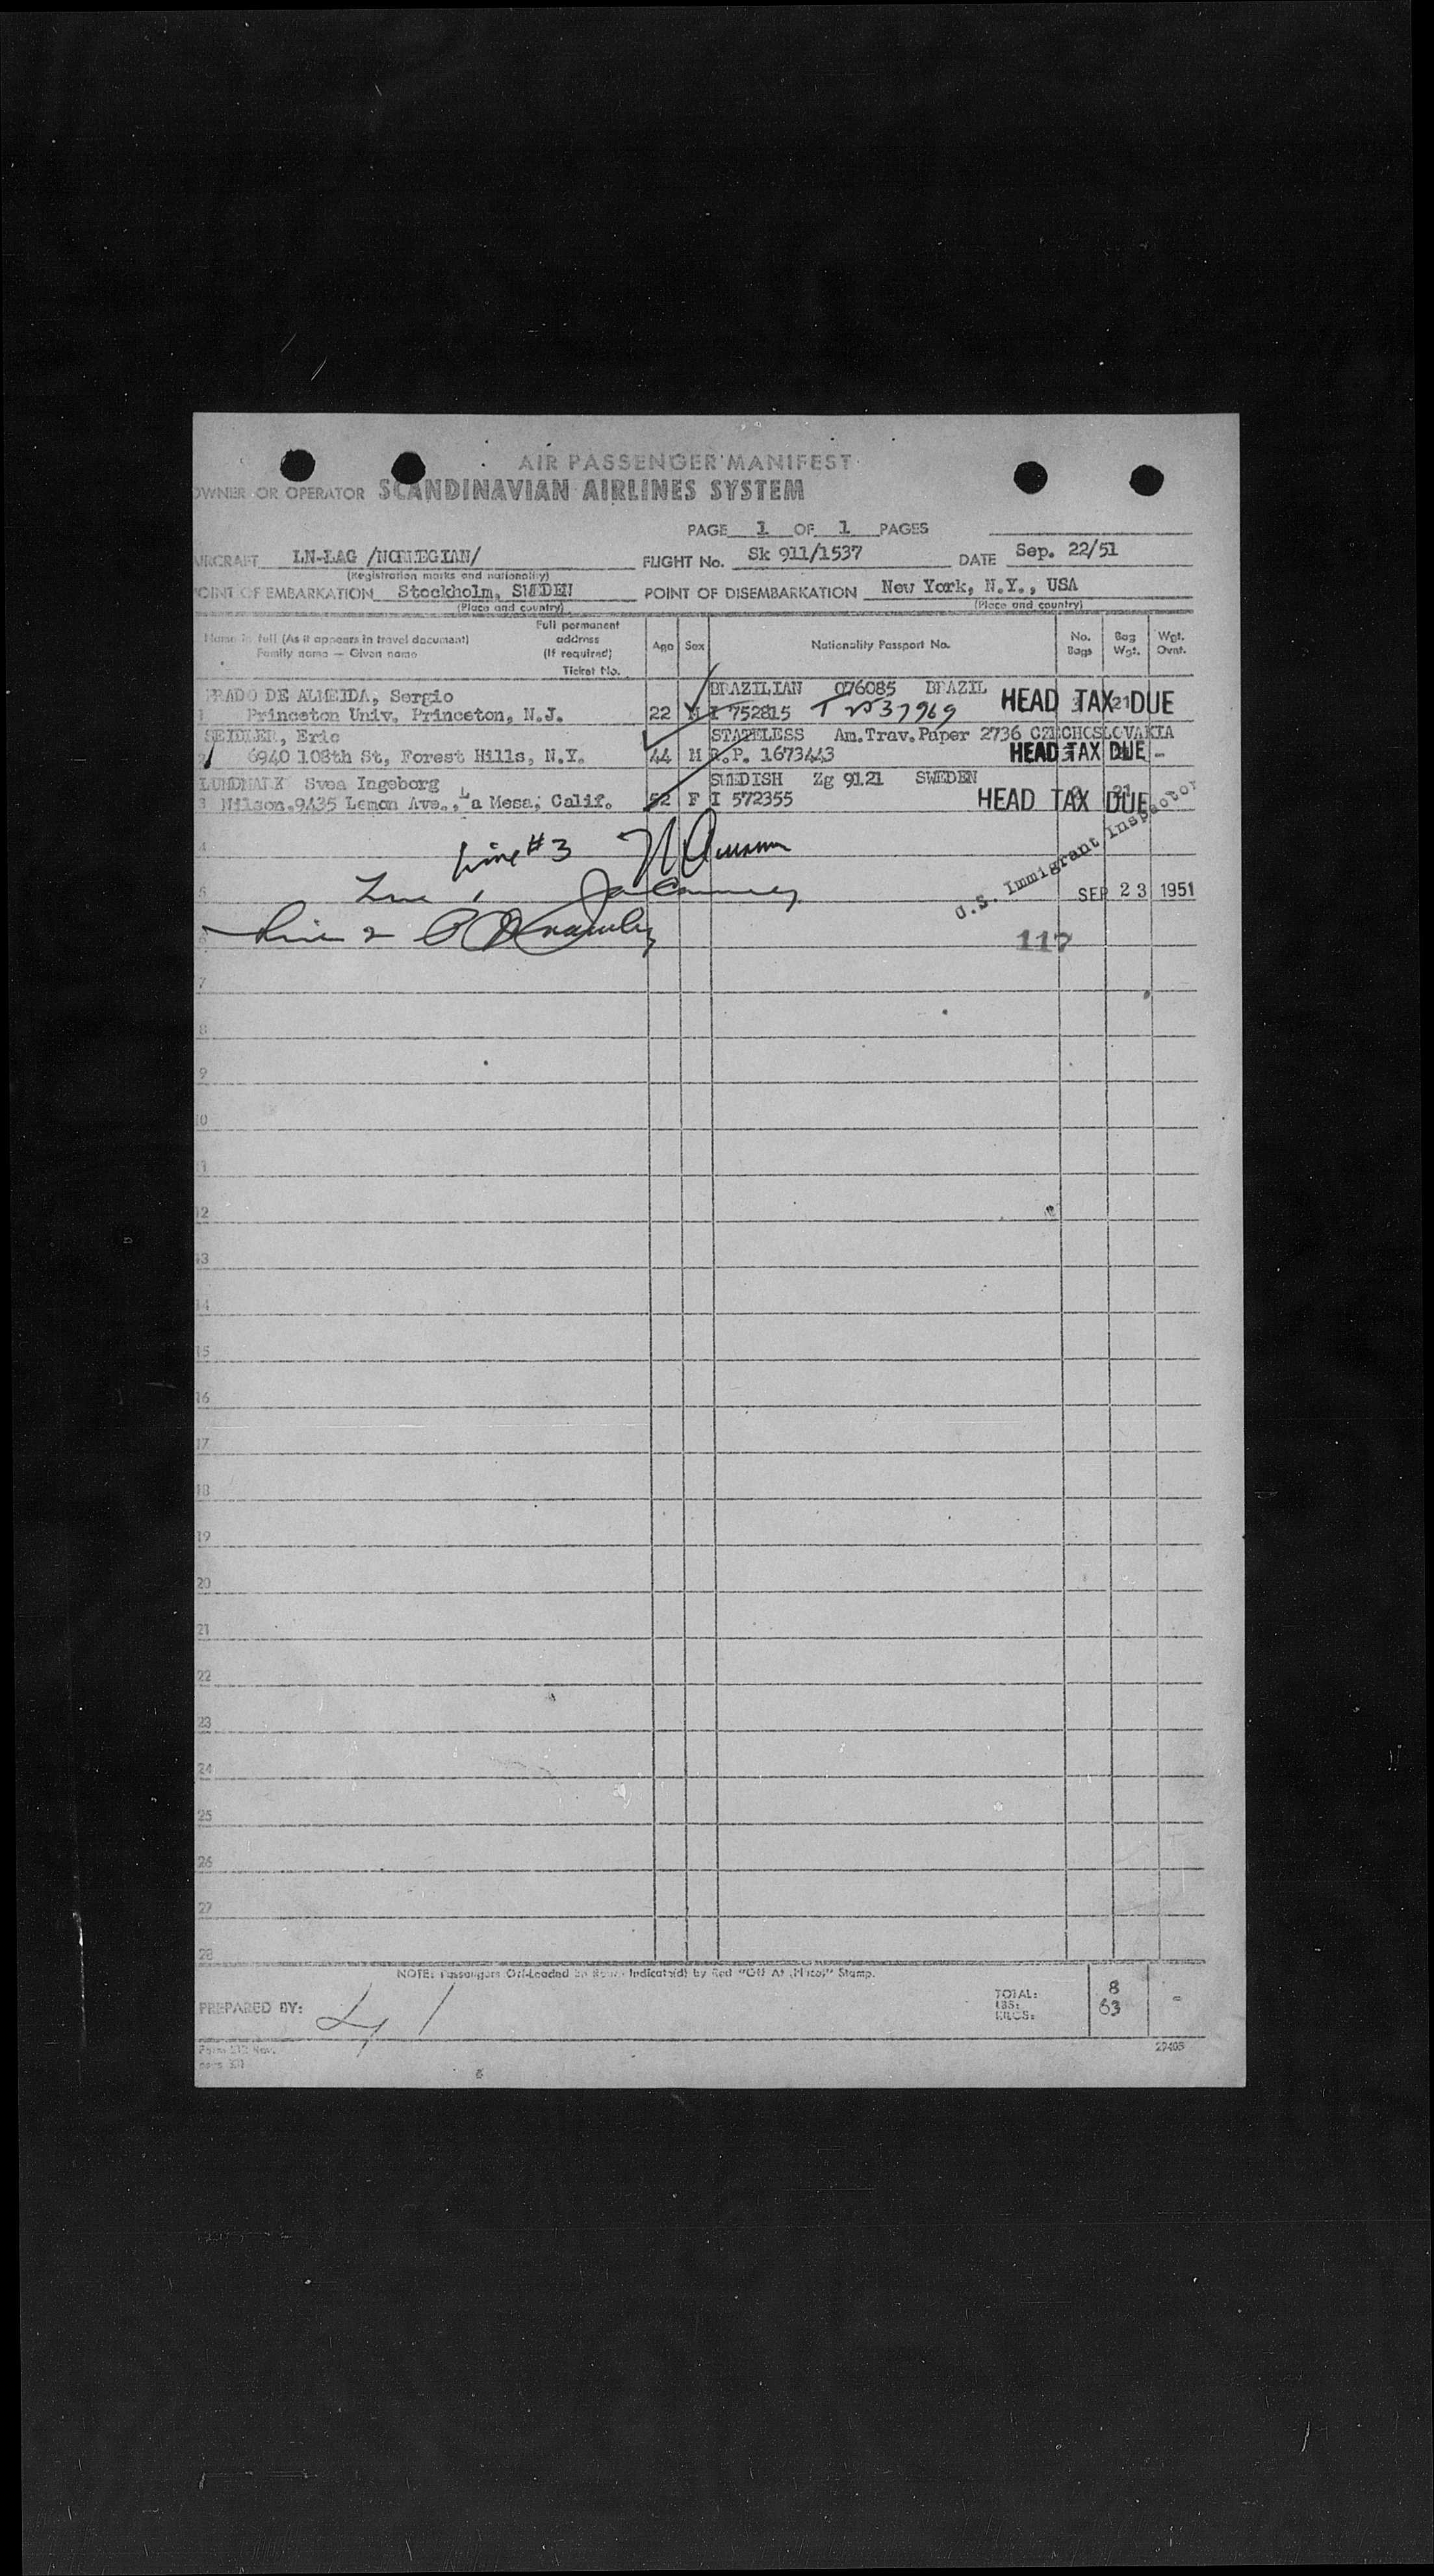 AIR PASSENGER MANIFEST
OWNER OR OPERATOR SCANDINAVIAN AIRLINES SYSTEM
PAGE 1 OF 1 PAGES
AIRCRAFT LN-LAG /NORWEGIAN/ FLIGHT No. Sk 911/1537 DATE Sep. 22/51
(Registration marks and nationality)
POINT OF EMBARKATION Stockholm, SWEDEN POINT OF DISEMBARKATION New York, N.Y., USA
(Place and country) (Place and country)
Name in full (As it appears in travel document) Family name — Given name Full permanent address (If required) Ticket No. Age Sex Nationality Passport No. No. Bags Bag Wgt. Wgt. Ovnt.
PRADO DE ALMEIDA, Sergio BRAZILIAN 076085 BRAZIL HEAD TAX DUE
1 Princeton Univ. Princeton, N.J. 22 M I 752815 3 21
SEIDLER, Eric STATELESS Am.Trav.Paper 2736 CZECHOSLOVAKIA
2 6940 108th St, Forest Hills, N.Y. 44 M R.P. 1673443 HEAD TAX DUE -
LUNDMARK Svea Ingeborg SWEDISH Zg 9121 SWEDEN
3 Nilson.9435 Lemon Ave., La Mesa, Calif. 52 F I 572355 HEAD TAX DUE 21
4 Line #3
U.S. Immigrant Inspector
5 Line 1 SEP 23 1951
6 Line 2 117
7
8
9
10
11
12
13
14
15
16
17
18
19
20
21
22
23
24
25
26
27
28
NOTE: Passengers Off-Loaded En Route Indicate(d) by Red "Off At (Place)" Stamp.
PREPARED BY: TOTAL: 8
LBS:
KILOS: 63 -
29405